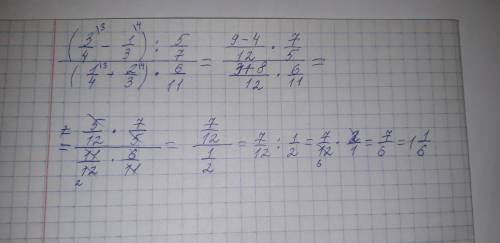 ((3/4)^{\3} - (1/3)^{\4}) : 5/7 / ((1/4)^{\3} + (2/3)^{\4}) · 6/11 = (9-4)/12 · 7/5 / (3+8)/12 · 6/11 =
= 5/12 · 7/5 / 11/12 · 6/11 = 7/12 / 1/2 = 7/12 : 1/2 = 7/12 · 2/1 = 7/6 = 1 1/6